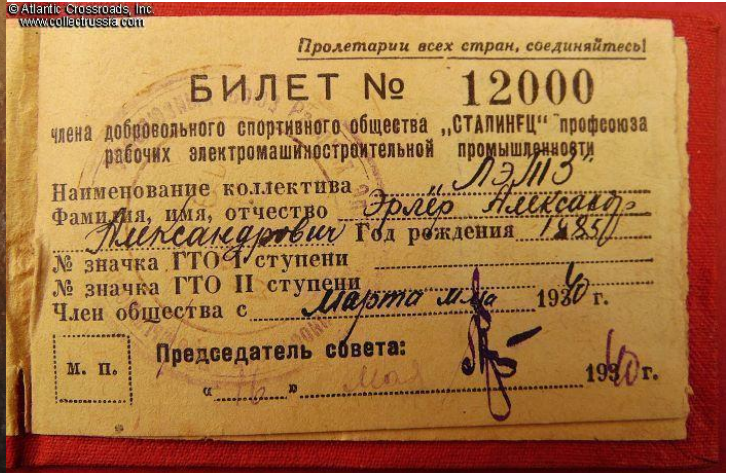 © Atlantic Crossroads, Inc.
www.collectrussia.com
Пролетарии всех стран, соединяйтесь!
БИЛЕТ № 12000
члена добровольного спортивного общества „СТАЛИНЕЦ" профсоюза
рабочих электромашиностроительной промышленности
Наименование коллектива ЛЭМЗ
Фамилия, имя, отчество Эрлер Александр
Александрович Год рождения 1885
№ значка ГТО I ступени
№ значка ГТО II ступени
Член общества с Марта м-ца 1940 г.
Председатель совета:
м. п.
« 16 » мая 1940 г.